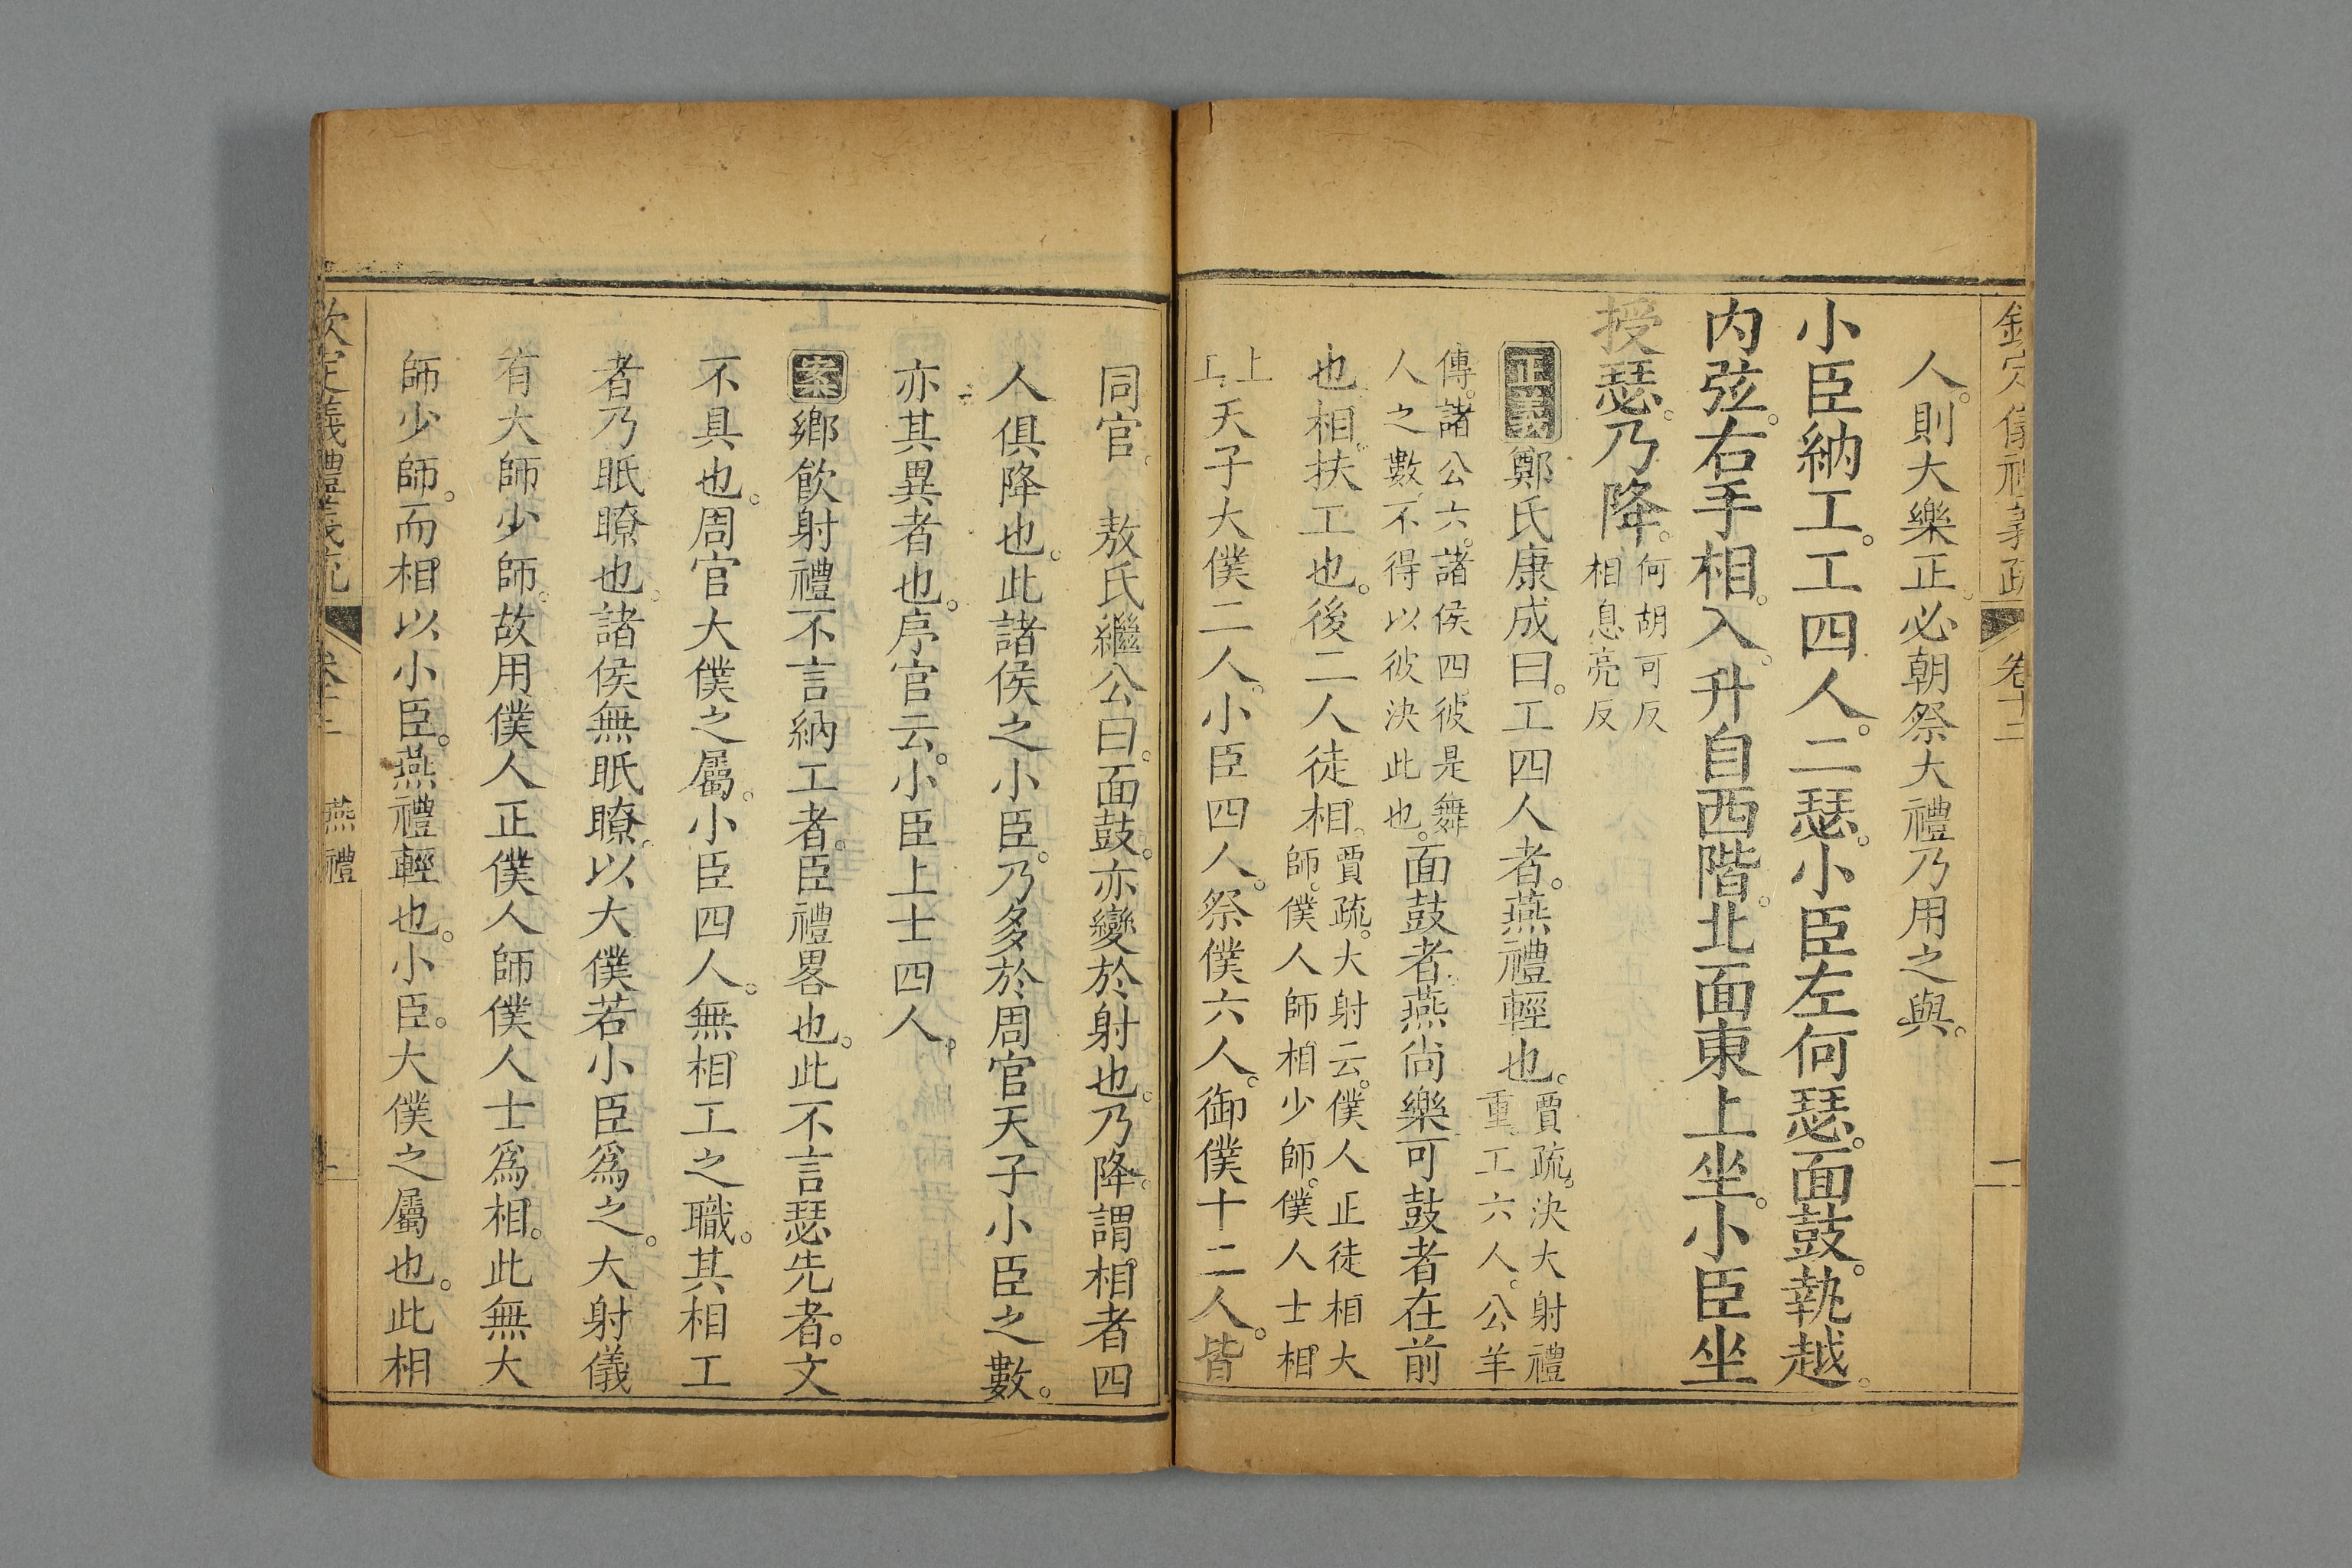 欽定儀禮義疏 卷十三
人。則大樂正。必朝祭大禮乃用之與。
小臣納工。工四人。二瑟。小臣左何瑟。面鼓。執越。
内弦。右手相。入。升自西階。北面東上坐。小臣坐
授瑟。乃降。何胡可反
相息亮反
正義 鄭氏康成曰。工四人者。燕禮輕也。賈疏。決大射禮
重工六人。公羊
傳。諸公六。諸侯四。彼是舞
人之數。不得以彼決此也。面鼓者。燕尚樂。可鼓者在前
也。相。扶工也。後二人徒相。賈疏。大射云。僕人正徒相大
師。僕人師相少師。僕人士相
上
工。天子大僕二人。小臣四人。祭僕六人。御僕十二人。皆
同官。 敖氏繼公曰。面鼓。亦變於射也。乃降。謂相者四
人俱降也。此諸侯之小臣。乃多於周官天子小臣之數。
亦其異者也。序官云。小臣上士四人。
案 鄉飲射禮不言納工者。臣禮畧也。此不言瑟先者。文
不具也。周官大僕之屬。小臣四人。無相工之職。其相工
者乃眂瞭也。諸侯無眂瞭。以大僕若小臣爲之。大射儀
有大師少師。故用僕人正僕人師僕人士爲相。此無大
師少師。而相以小臣。燕禮輕也。小臣。大僕之屬也。此相
欽定儀禮義疏 卷十三 燕禮